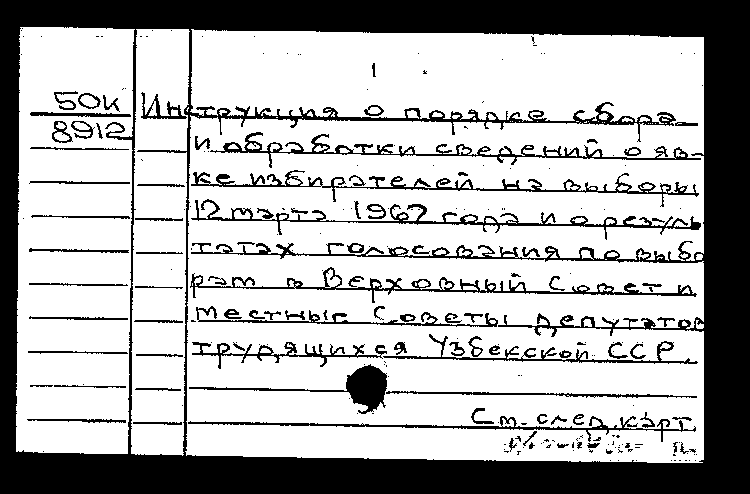 1
50к Инструкция о порядке сбора
8912 и обработки сведений о яв-
ке избирателей на выборы
12 марта 1967 года и о резуль
татах голосования по выбо
рам в Верховный Совет и
местные Советы депутатов
трудящихся Узбекской ССР.
См. след. карт.